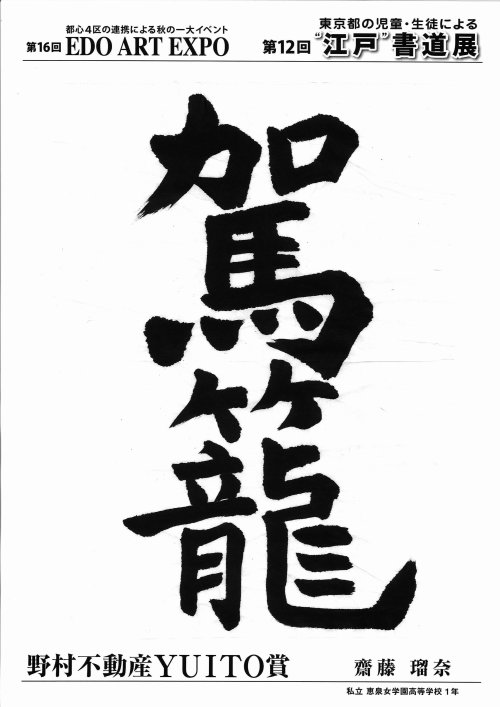 都心4区の連携による秋の一大イベント
第16回 EDO ART EXPO
東京都の児童・生徒による
第12回 "江戸"書道展
駕籠
野村不動産YUITO賞
齋藤 瑠奈
私立 恵泉女学園高等学校 1年